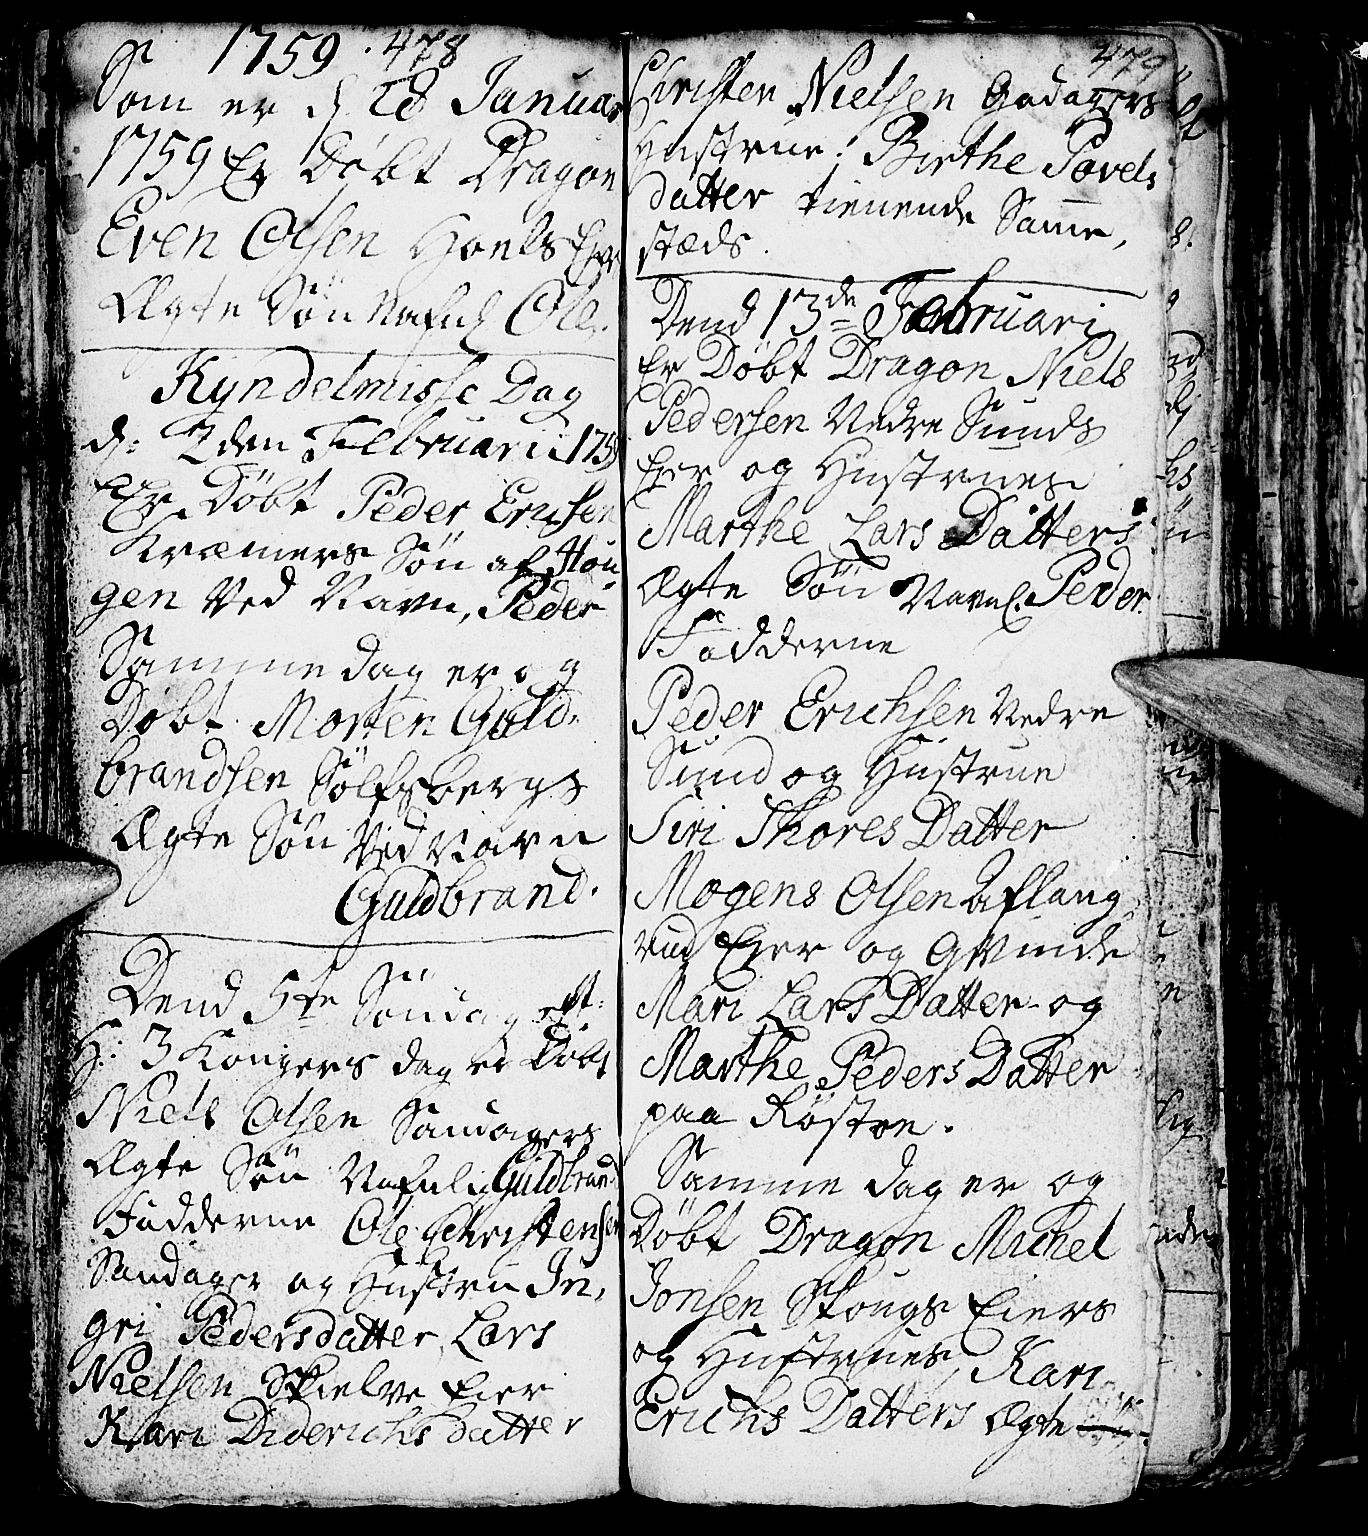 1759. 478
Som er d. 28 Januar
1759 Er Døbt Dragon
Even Olsen Hoels Eier
Ægte Søn Nafnl. Ole.
Kyndelmisse Dag
d: 2den Februari 1759
Er Døbt Peder Erichsen
Kræmers Søn af Hou
gen Ved Navn, Peder
Samme dag er og
Døbt Morten Guld,
brandsen Sølfsbergs
Ægte Søn Ved Navn
Guldbrand.
Dend 5te Søndag eft:
H: 3 Kongers dag er Døbt
Niels Olsen Sandagers
Ægte Søn Nafnlig Guldbrand
Fadderne Ole Christensen
Sandager og Hustru In,
gri Pedersdatter, Lars
Nielsen Skielve Eier
Kari Diderichsdatter
479
Christen Nielsen Sadagers
Hustrue: Birthe Povels
datter tienende Samme,
stæds.
Dend 13de Februari
Er Døbt Dragon Niels
Pedersen Nedre Sunds
Eier og Hustrues
Marthe Lars Datters
Ægte Søn Navnl. Peder
Fadderne
Peder Erichsen Nedre
Sund og Hustrue
Siri Thores Datter
Mogens Olsen Aslang
rud Eier og Qvinde
Mari Lars Datter og
Marthe Peders Datter
paa Røstøe.
Samme dag er og
Døbt Dragon Michel
Jonsen Skougs Eiers
og Hustrues, Kari
Erichs Datters Ægte